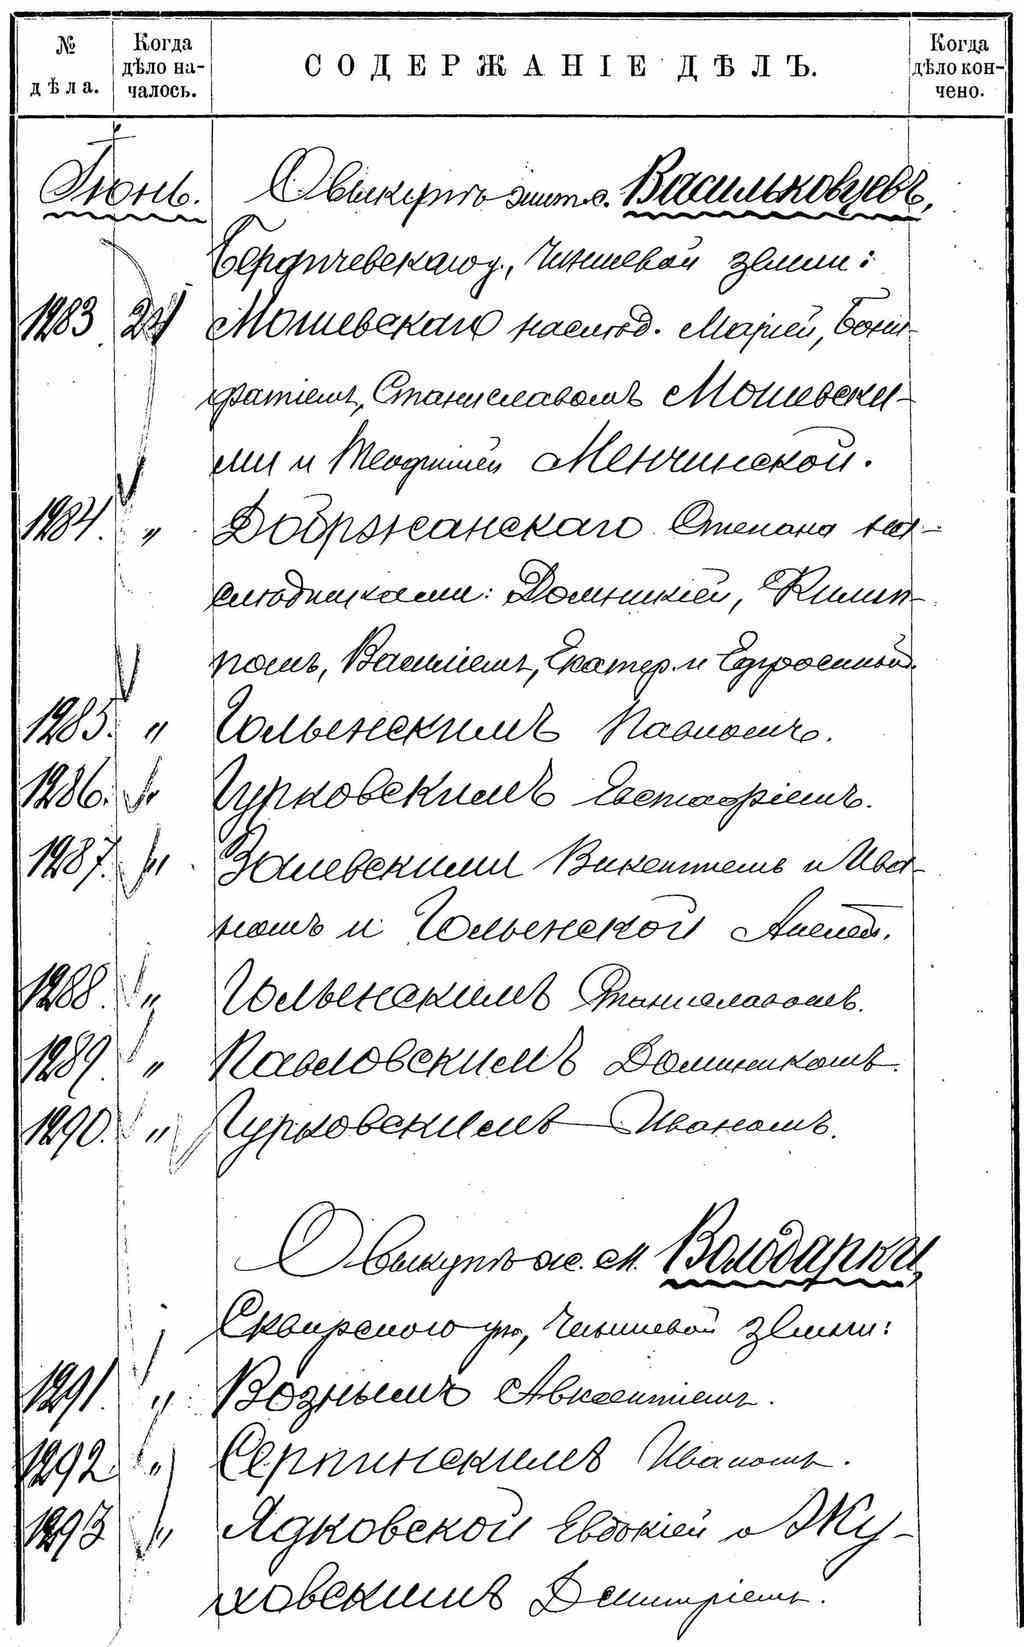 № дѣла.
Когда дѣло на-
чалось.
СОДЕРЖАНІЕ ДѢЛЪ.
Когда дѣло кон-
чено.
Іюнь. О выкупѣ жит. с. Васильковцевъ,
Бердичевскаго у., Чиншевой земли:
1283 24 Мошевскаго наслѣд. Маріей, Бони-
фатіемъ, Станиславомъ Мошевски-
ми и Теофилией Менчинской.
1284. " Добржанскаго Степана на-
слѣдниками: Доминикіей, Филип-
помъ, Василіемъ, Екатер. и Ефросиньей.
1285. " Гольенскимъ Павломъ.
1286. " Гурковскимъ Евстафіемъ.
1287. " Залевскими Викентіемъ и Ива-
номъ и Гольенской Анелей.
1288. " Гольенскимъ Станиславомъ.
1289. " Павловскимъ Доминикомъ.
1290. " Гурковскимъ Иваномъ.
О выкупѣ ж. м. Володарки,
Сквирскаго у., Чиншевой земли:
1291. " Вознымъ Авксентіемъ.
1292. " Серпинскимъ Иваномъ.
1293 " Ядковской Евдокіей и Жу-
ховскимъ Дмитріемъ.